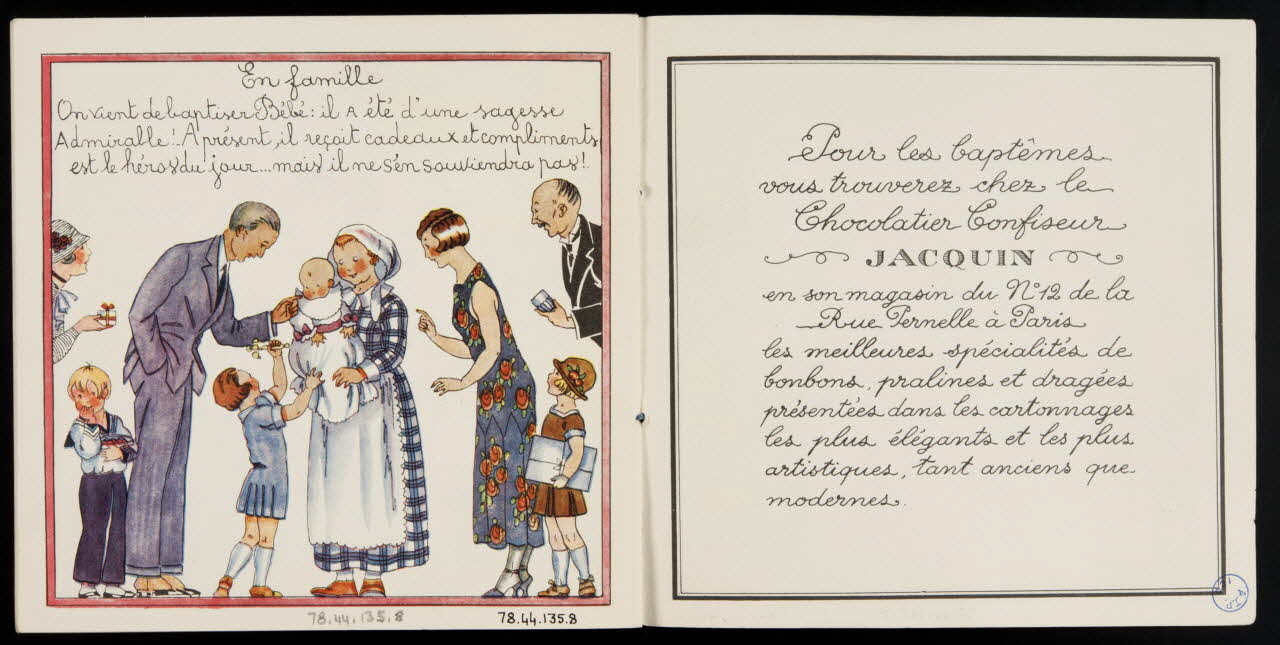 En famille
On vient de baptiser Bébé : il A été d'une sagesse
Admirable ! A présent, il reçoit cadeaux et compliments,
est le héros du jour... mais il ne s'en souviendra pas !
78.44.135.8
78.44.135.8
Pour les baptêmes
vous trouverez chez le
Chocolatier Confiseur
JACQUIN
en son magasin du N° 12 de la
Rue Pernelle à Paris
les meilleures spécialités de
bonbons, pralines et dragées
présentées dans les cartonnages
les plus élégants et les plus
artistiques, tant anciens que
modernes.